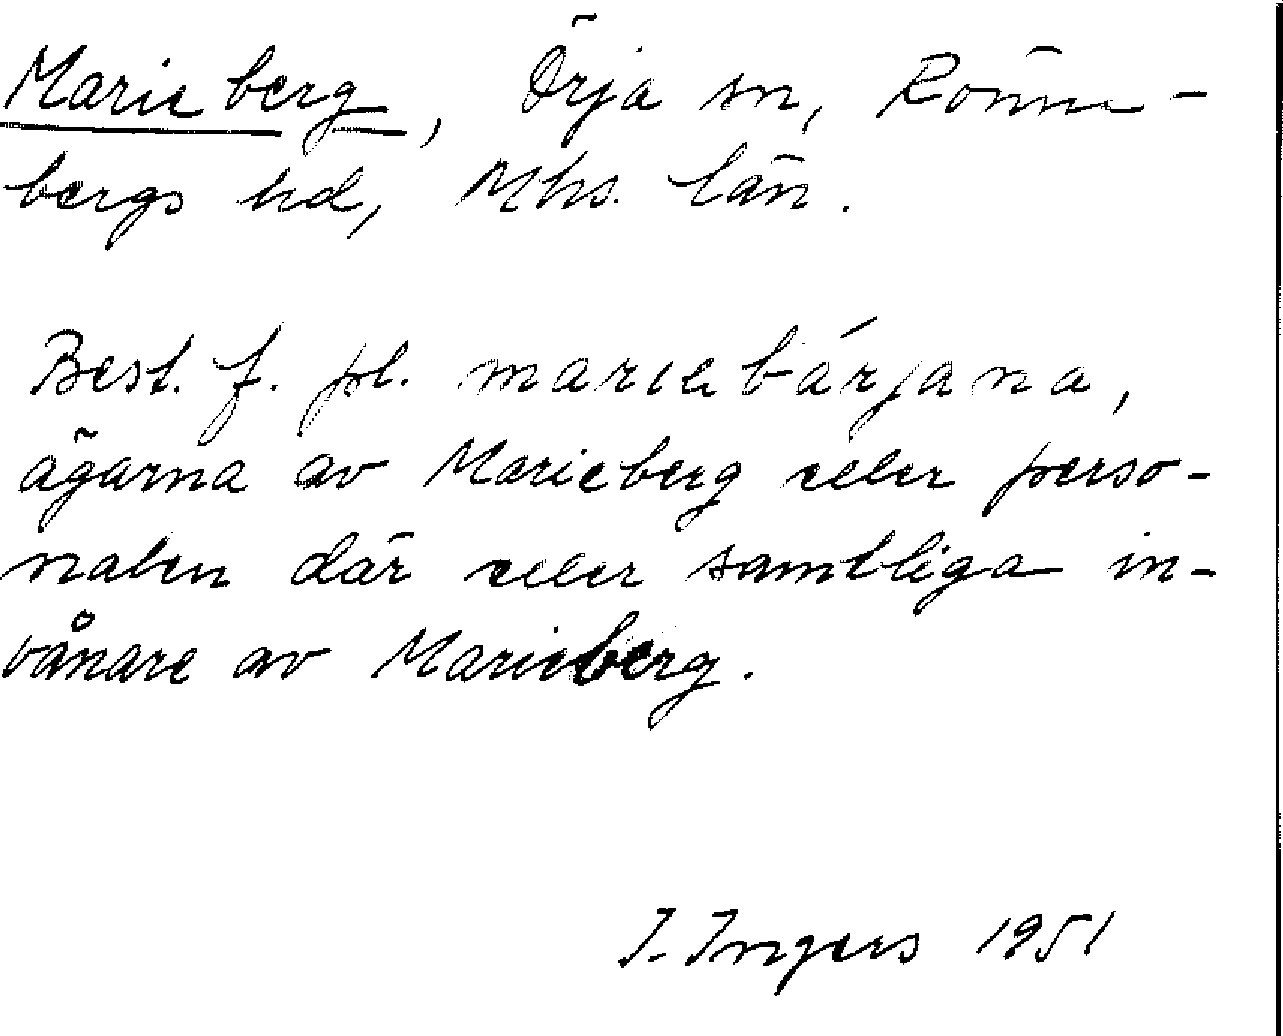 Marieberg, Örja sn, Rönne-
bergs hd, Mhs. län.
Best. f. pl. mariebárjana,
ägarna av Marieberg eller perso-
nalen där eller samtliga in-
vånare av Marieberg.
I. Ingers 1951